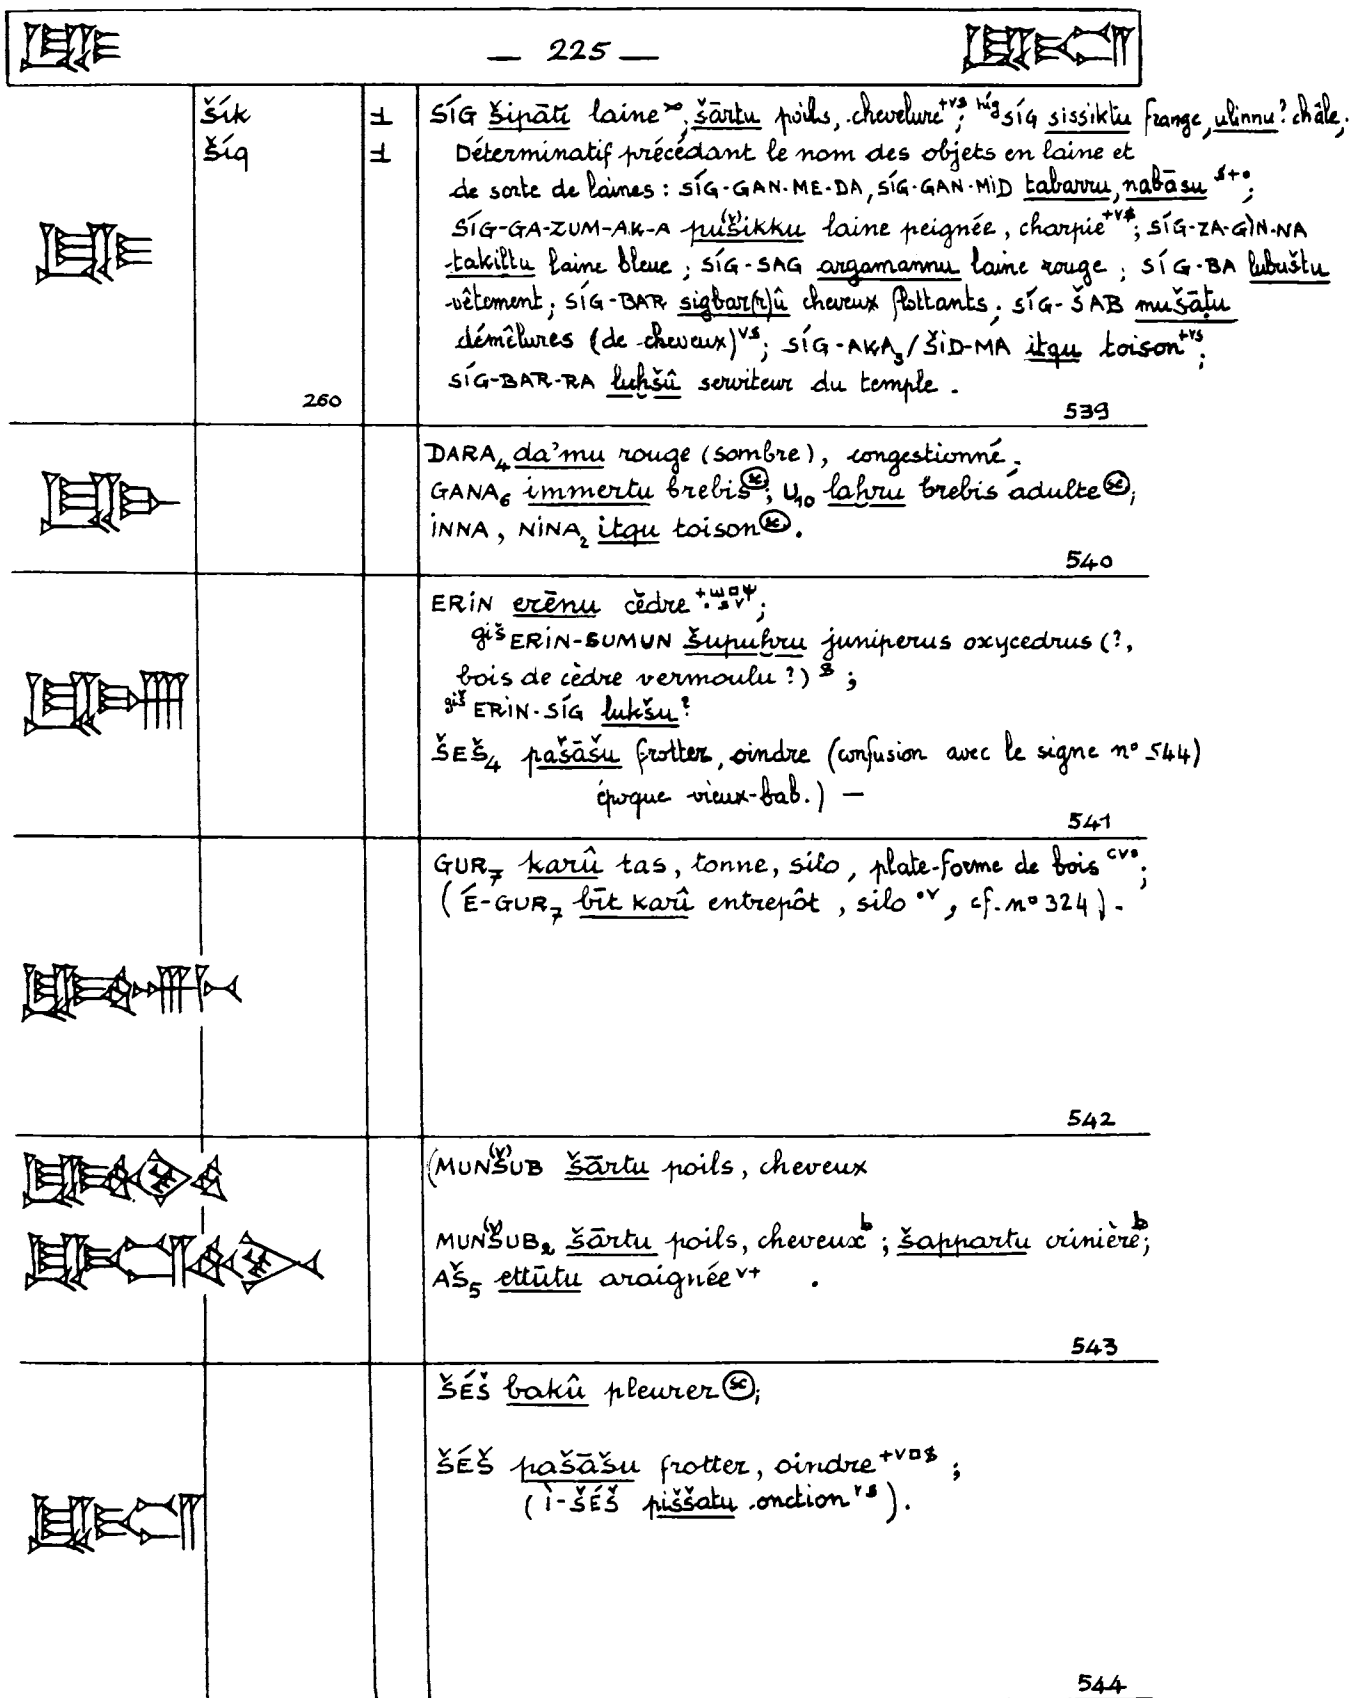 — 225 —
šík ± SÍG šipāti laine, šārtu poils, chevelure +vs; níg SÍG sissiktu frange, ulinnu? châle;
šíq ± Déterminatif précédant le nom des objets en laine et
de sorte de laines : SÍG-GAN-ME-DA, SÍG-GAN-MID tabarru, nabāsu;
SÍG-GA-ZUM-AK-A pušikku laine peignée, charpie; SÍG-ZA-GÌN-NA
takiltu laine bleue ; SÍG-SAG argamannu laine rouge ; SÍG-BA lubuštu
vêtement; SÍG-BAR sigbar(r)û cheveux flottants; SÍG-ŠAB mušāṭu
démêlures (de cheveux) vs; SÍG-AKA₃/ŠID-MÁ itqu toison +vs;
SÍG-BAR-RA luḫšû serviteur du temple .
260
539
DARA₄ da'mu rouge (sombre), congestionné;
GANA₆ immertu brebis; U₁₀ laḫru brebis adulte;
INNA, NINA₂ itqu toison.
540
ERIN erēnu cèdre;
giš ERIN-SUMUN šupuḫru juniperus oxycedrus (?,
bois de cèdre vermoulu ?) ;
giš ERIN-SÍG lukšu?
ŠEŠ₄ pašāšu frotter, oindre (confusion avec le signe n° 544)
époque vieux-bab.) —
541
GUR₇ karû tas, tonne, silo, plate-forme de bois;
(É-GUR₇ bīt karî entrepôt, silo, cf. n° 324).
542
(MUNŠUB šārtu poils, cheveux
MUNŠUB₂ šārtu poils, cheveux b; šappartu crinière b;
AŠ₅ ettūtu araignée v+ .
543
ŠÉŠ bakû pleurer;
ŠÉŠ pašāšu frotter, oindre;
(Ì-ŠÉŠ piššatu onction).
544